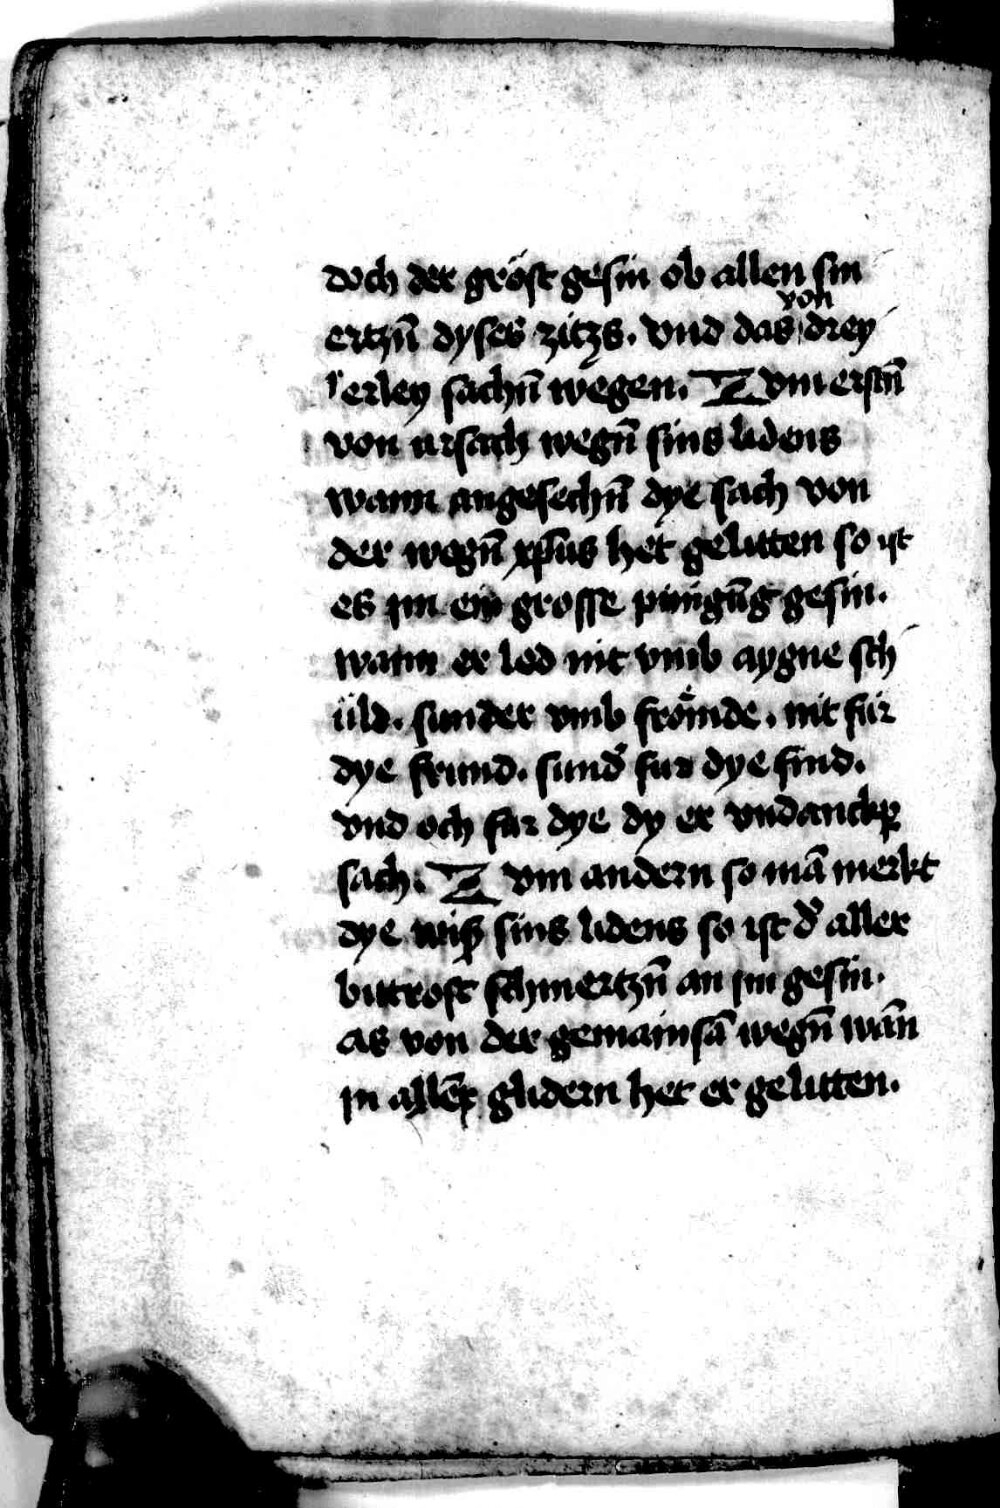 doch der gröst gesin ob allen sm
ertzn̄ dyses zitzs. vnd das von drey
erley sachn̄ wegen. Zvm erstn̄
von ursach wegn̄ sins lidens
wann angesechn̄ dye sach von
der wegn̄ xp̄us het gelitten so ist
es jm ein grosse pinigūg gesin.
wann er led nit vmb aygne sch
üld. sunder vmb frömde. nit für
dye frund. sund' fur dye find.
vnd och fur dye dy er vndanckp
sach. Zvm andern so mā merkt
dye wiß sins lidens so ist d' aller
bittrost schmertzn̄ an jm gesin.
as von der gemainsā wegn̄ wān
jn allen glidern het er gelitten.